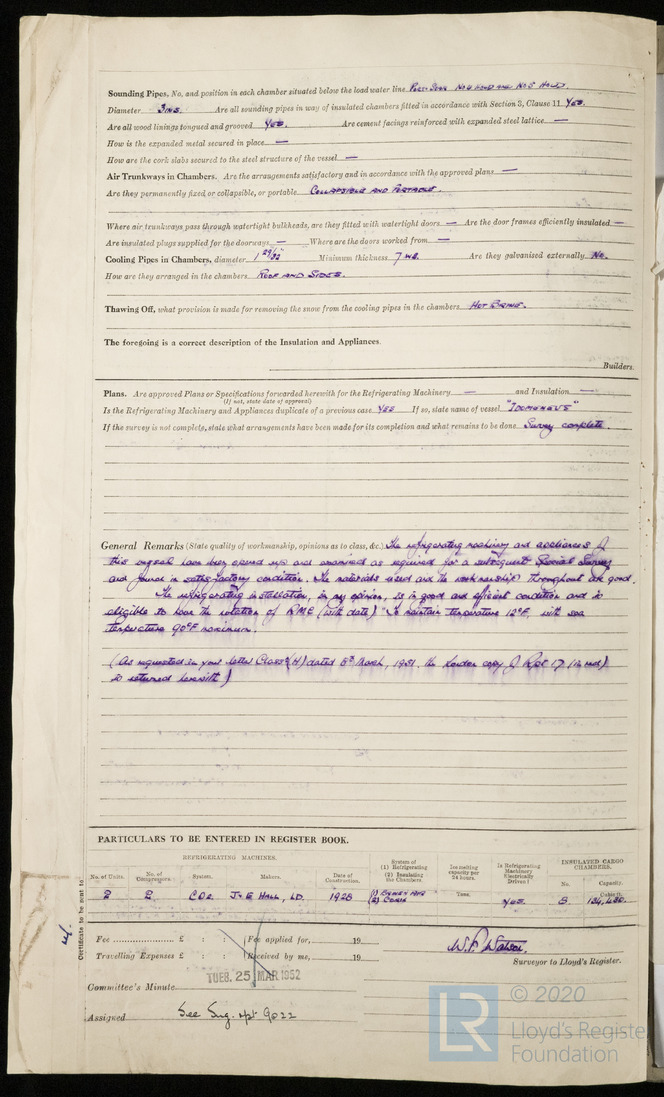 Sounding Pipes, No. and position in each chamber situated below the load water line No 4 Hold and No 5 Hold.
Diameter 3 ins. Are all sounding pipes in way of insulated chambers fitted in accordance with Section 3, Clause 11 Yes.
Are all wood linings tongued and grooved Yes. Are cement facings reinforced with expanded steel lattice. —
How is the expanded metal secured in place —
How are the cork slabs secured to the steel structure of the vessel —
Air Trunkways in Chambers. Are the arrangements satisfactory and in accordance with the approved plans —
Are they permanently fixed or collapsible, or portable. Collapsible and Portable.
Where air trunkways pass through watertight bulkheads, are they fitted with watertight doors — Are the door frames efficiently insulated —
Are insulated plugs supplied for the doorways — Where are the doors worked from —
Cooling Pipes in Chambers, diameter 1 29/32" Minimum thickness 7 WG. Are they galvanised externally No.
How are they arranged in the chambers Roof and Sides.
Thawing Off, what provision is made for removing the snow from the cooling pipes in the chambers Hot Brine.
The foregoing is a correct description of the Insulation and Appliances.
Builders.
Plans. Are approved Plans or Specifications forwarded herewith for the Refrigerating Machinery — and Insulation —
(If not, state date of approval)
Is the Refrigerating Machinery and Appliances duplicate of a previous case Yes If so, state name of vessel "Idomeneus"
If the survey is not complete, state what arrangements have been made for its completion and what remains to be done. Survey complete.
General Remarks (State quality of workmanship, opinions as to class, &c.) The refrigerating machinery and appliances of
this vessel have been opened up and examined as required for a subsequent Special Survey
and found in satisfactory condition. The materials used and the workmanship throughout are good.
The refrigerating installation, in my opinion, is in good and efficient condition and is
eligible to have the notation of RMC (with date) "To maintain temperature 12°F, with sea
temperature 90°F maximum.
(As requested in your letter Class (H) dated 5th March, 1951, the London copy of Rpt 17 is returned herewith)
PARTICULARS TO BE ENTERED IN REGISTER BOOK.
REFRIGERATING MACHINES.
No. of Units. No. of Compressors. System. Makers. Date of Construction. System of (1) Refrigerating (2) Insulating the Chambers. Ice making capacity per 24 hours. Is Refrigerating Machinery Electrically Driven? INSULATED CARGO CHAMBERS. No. Capacity.
Tons. Cubic ft.
2 2 CO2. J & E Hall, Ld. 1926 (1) (2) Cork Yes.
Certificate to be sent to
Fee £ : : Fee applied for, 19
Travelling Expenses £ : : Received by me, 19
W. P. Watson.
Surveyor to Lloyd's Register.
TUES. 25 MAR 1952
Committee's Minute
Assigned See Eng. rpt 9022
LR
© 2020
Lloyd's Registe
Foundation